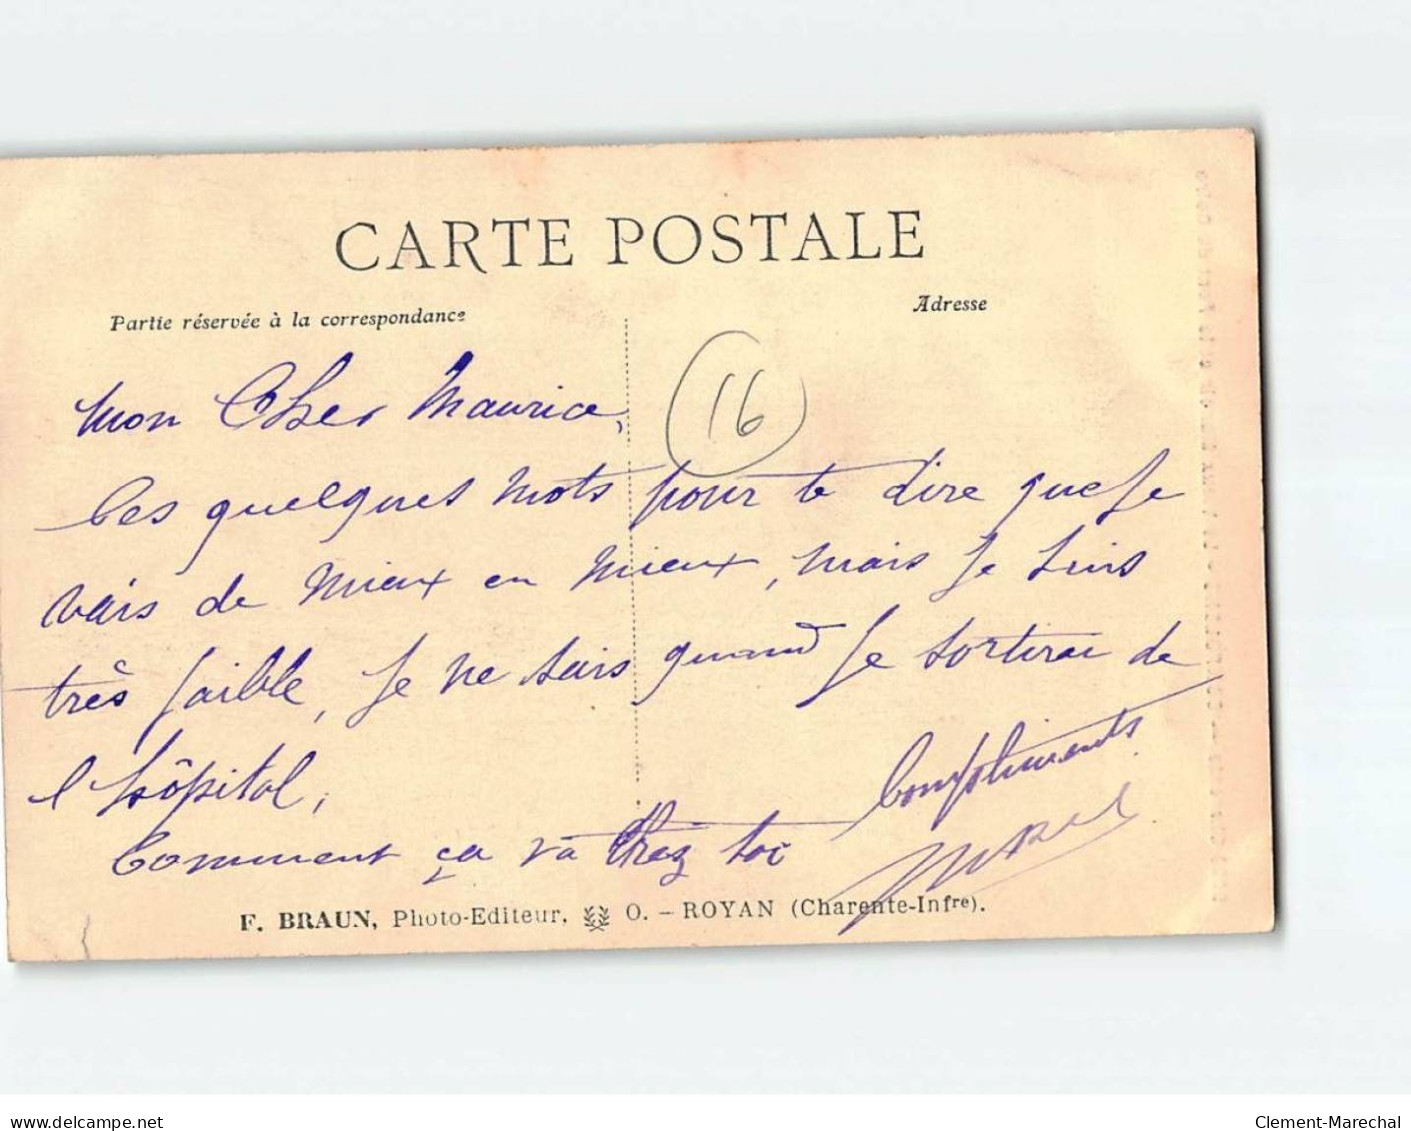 CARTE POSTALE
Partie réservée à la correspondance
Adresse
16
Mon Cher Maurice,
Ces quelques mots pour te dire que je
vais de mieux en mieux, mais je suis
très faible, je ne sais quand je sortirai de
l'hôpital,
Comment ça va chez toi
Compliments
F. BRAUN, Photo-Editeur, O. - ROYAN (Charente-Infre).
www.delcampe.net
Clement-Marechal